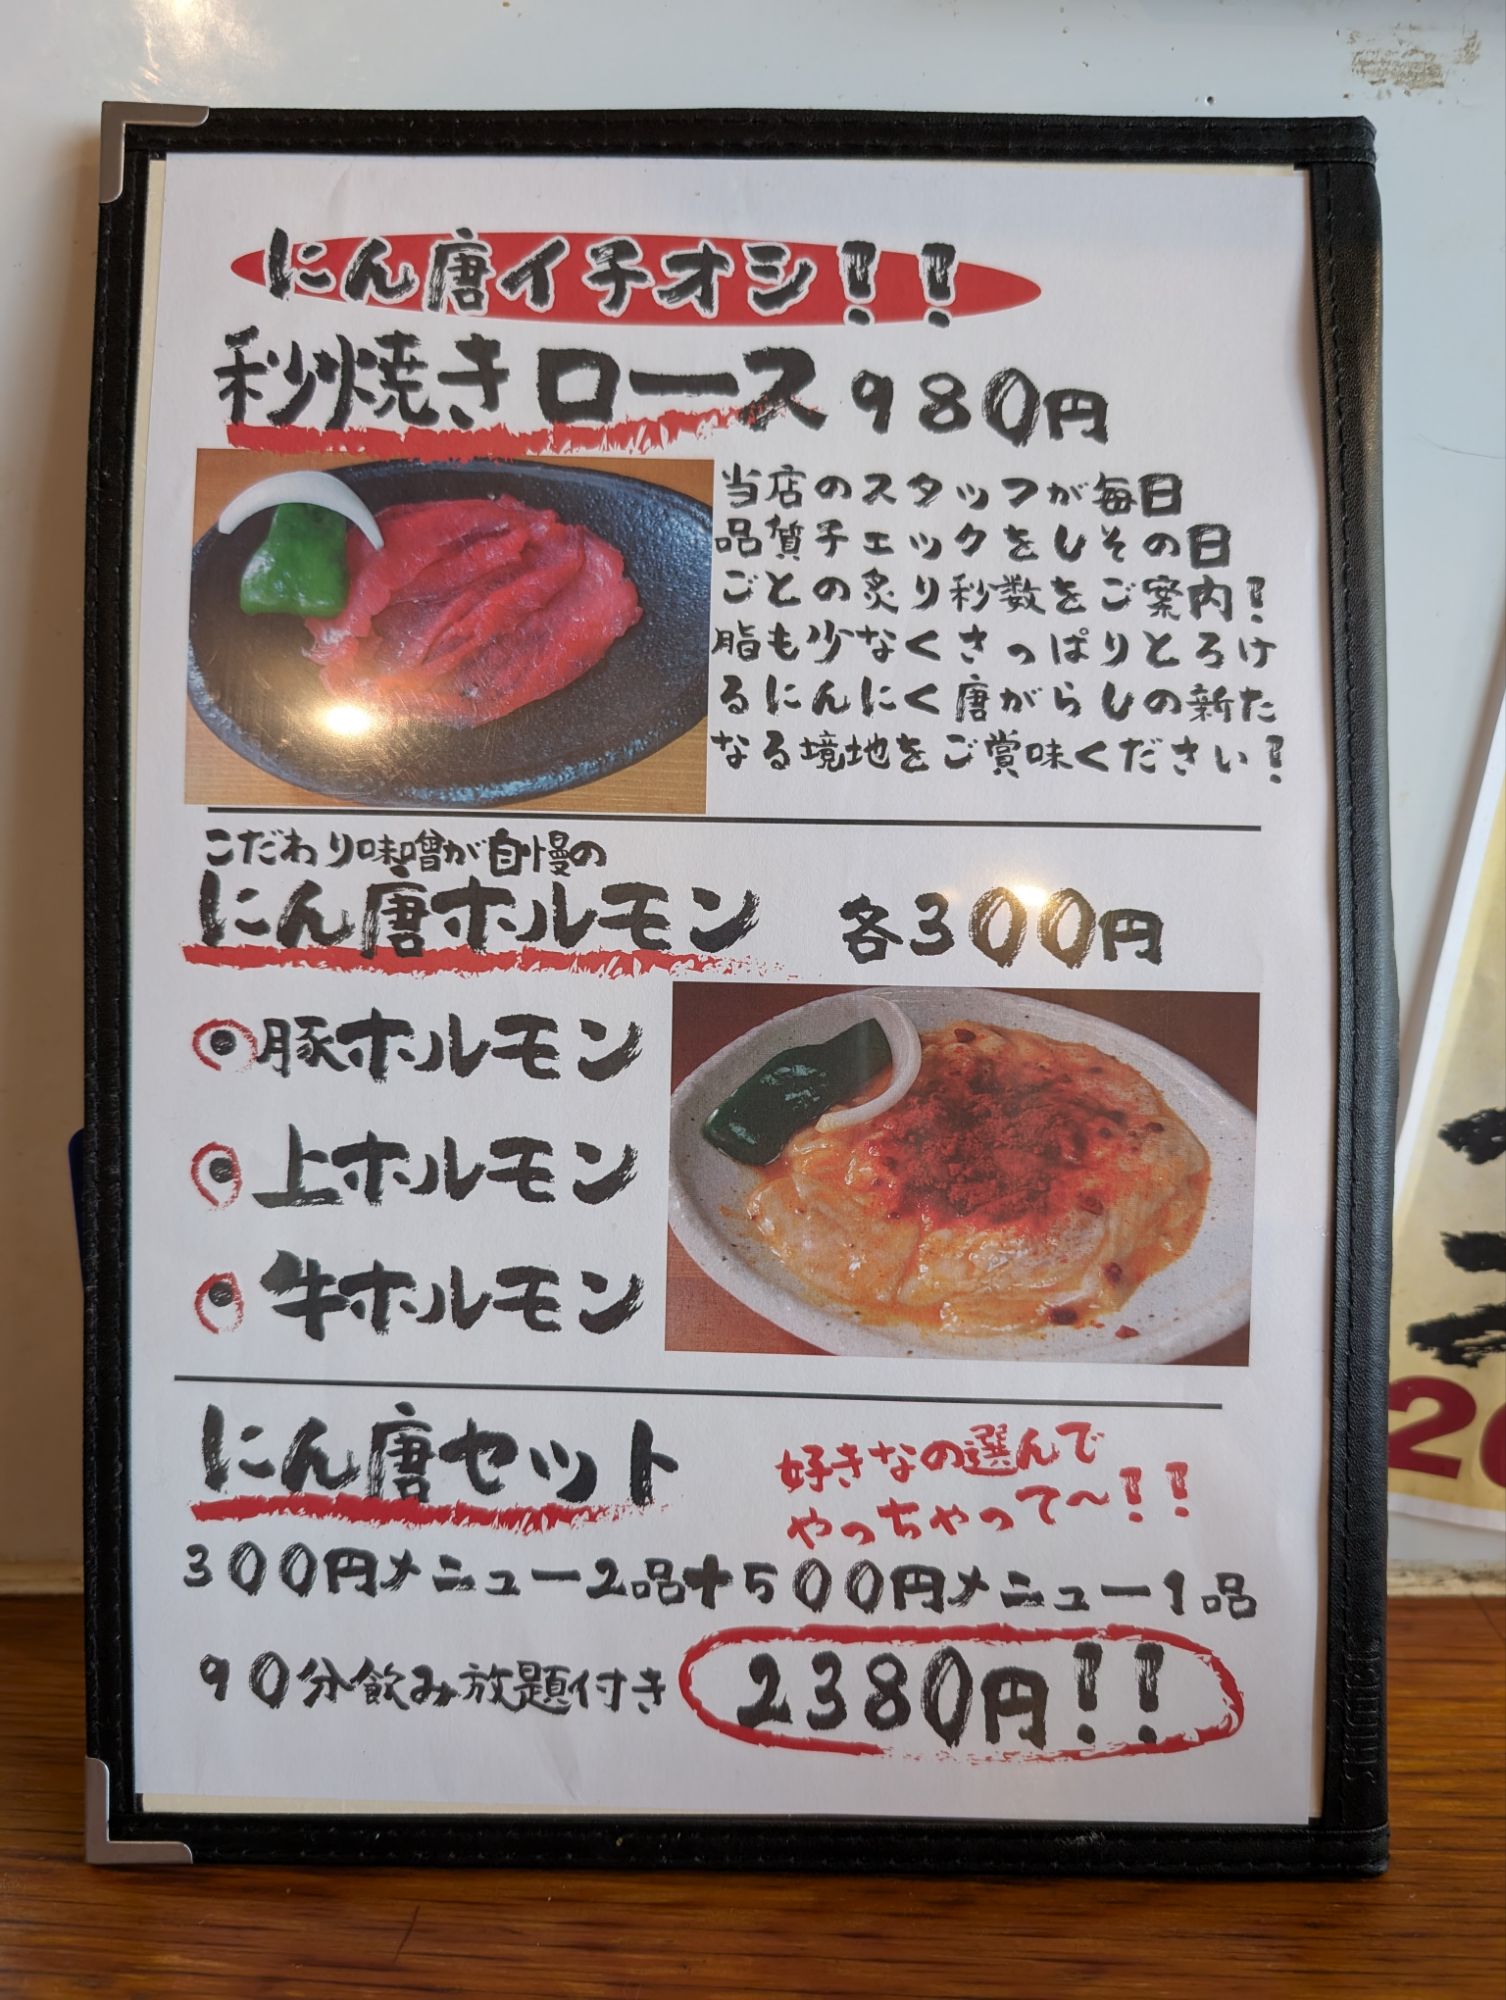 にん唐イチオシ！！
秒焼きロース 980円
当店のスタッフが毎日
品質チェックをしその日
ごとの炙り秒数をご案内！
脂も少なくさっぱりとろけ
るにんにく唐がらしの新た
なる境地をご賞味ください！
こだわり味噌が自慢の
にん唐ホルモン 各300円
●豚ホルモン
●上ホルモン
●牛ホルモン
にん唐セット
好きなの選んで
やっちゃって〜！！
300円メニュー2品+500円メニュー1品
90分飲み放題付き 2380円！！